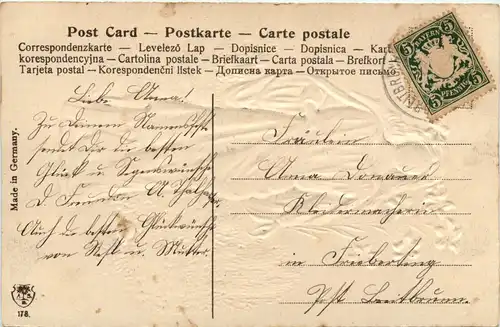 Post Card – Postkarte – Carte postale
Correspondenzkarte – Levelező Lap – Dopisnice – Dopisnica – Kart
korespondencyjna – Cartolina postale – Briefkaart – Carta postala – Brefkort
Tarjeta postal – Korespondenční lístek – Дописна карта – Открытое письмо
BAYERN
5
5
PFENNIG
5
5
Made in Germany.
Liebe Anna!
Zu Deinem Namensfeste
sendet Dir die besten
Glück u. Segenswünsche
D. Freundin A.
Auch die besten Glückwünsche
von u. Mutter.
Fräulein
Anna Donauer
Kleidermacherin
in
Post Breitbrunn.
178.